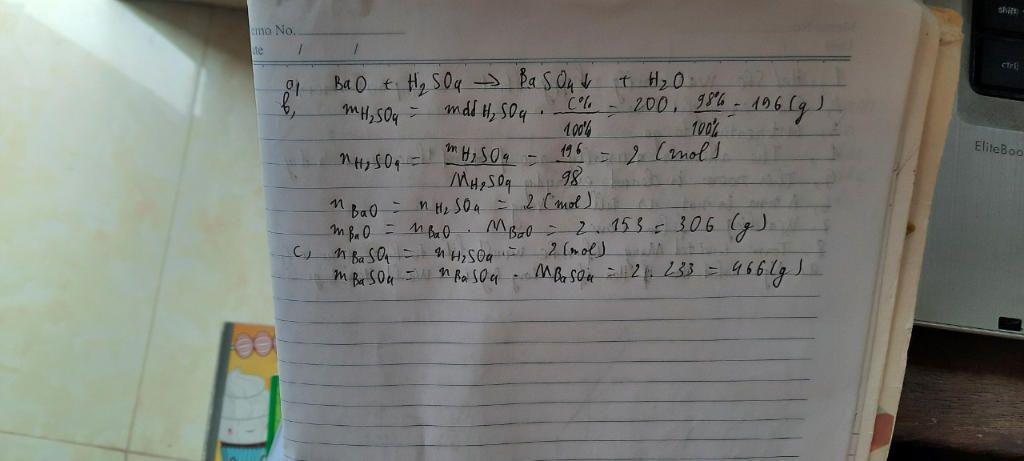 emo No.
ate / /
a, BaO + H₂SO₄ → BaSO₄↓ + H₂O
b, mH₂SO₄ = mdd H₂SO₄ . C%/100% = 200 . 98%/100% = 196 (g)
nH₂SO₄ = mH₂SO₄/MH₂SO₄ = 196/98 = 2 (mol)
nBaO = nH₂SO₄ = 2 (mol)
mBaO = nBaO . MBaO = 2 . 153 = 306 (g)
c, nBaSO₄ = nH₂SO₄ = 2 (mol)
mBaSO₄ = nBaSO₄ . MBaSO₄ = 2 . 233 = 466 (g)
shift
ctrl
EliteBoo